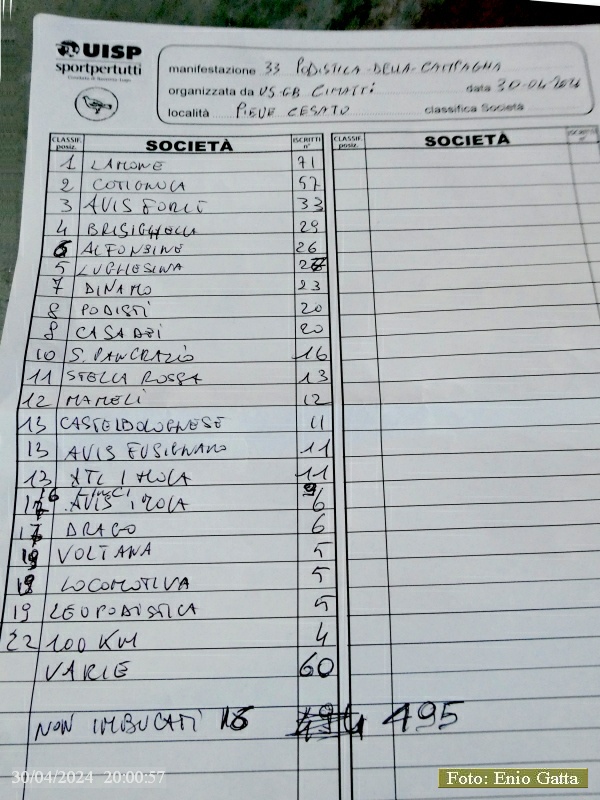 UISP
sportpertutti
manifestazione 33 PODISTICA DELLA CAMPAGNA
organizzata da US GB CIMATTI data 30-04-2024
località PIEVE CESATO classifica Società
CLASSIF. posiz. SOCIETÀ ISCRITTI n° CLASSIF. posiz. SOCIETÀ ISCRITTI n°
1 LAMONE 71
2 COTIGNOLA 57
3 AVIS FORLÌ 33
4 BRISIGHELLA 29
6 ALFONSINE 26
5 LUGHESINA
7 DINAMO 23
8 PODISTI 20
8 CASADEI 20
10 S. PANCRAZIO 16
11 STELLA ROSSA 13
12 MAMELI 12
13 CASTELBOLOGNESE 11
13 AVIS FUSIGNANO 11
13 ATL IMOLA 11
16 9
17 AVIS IMOLA 6
17 DRAGO 6
19 VOLTANA 5
19 LOCOMOTIVA 5
19 LEOPODISTICA 5
22 100 KM 4
VARIE 60
NON IMBUCATI 16 495
30/04/2024 20:00:57
Foto: Enio Gatta